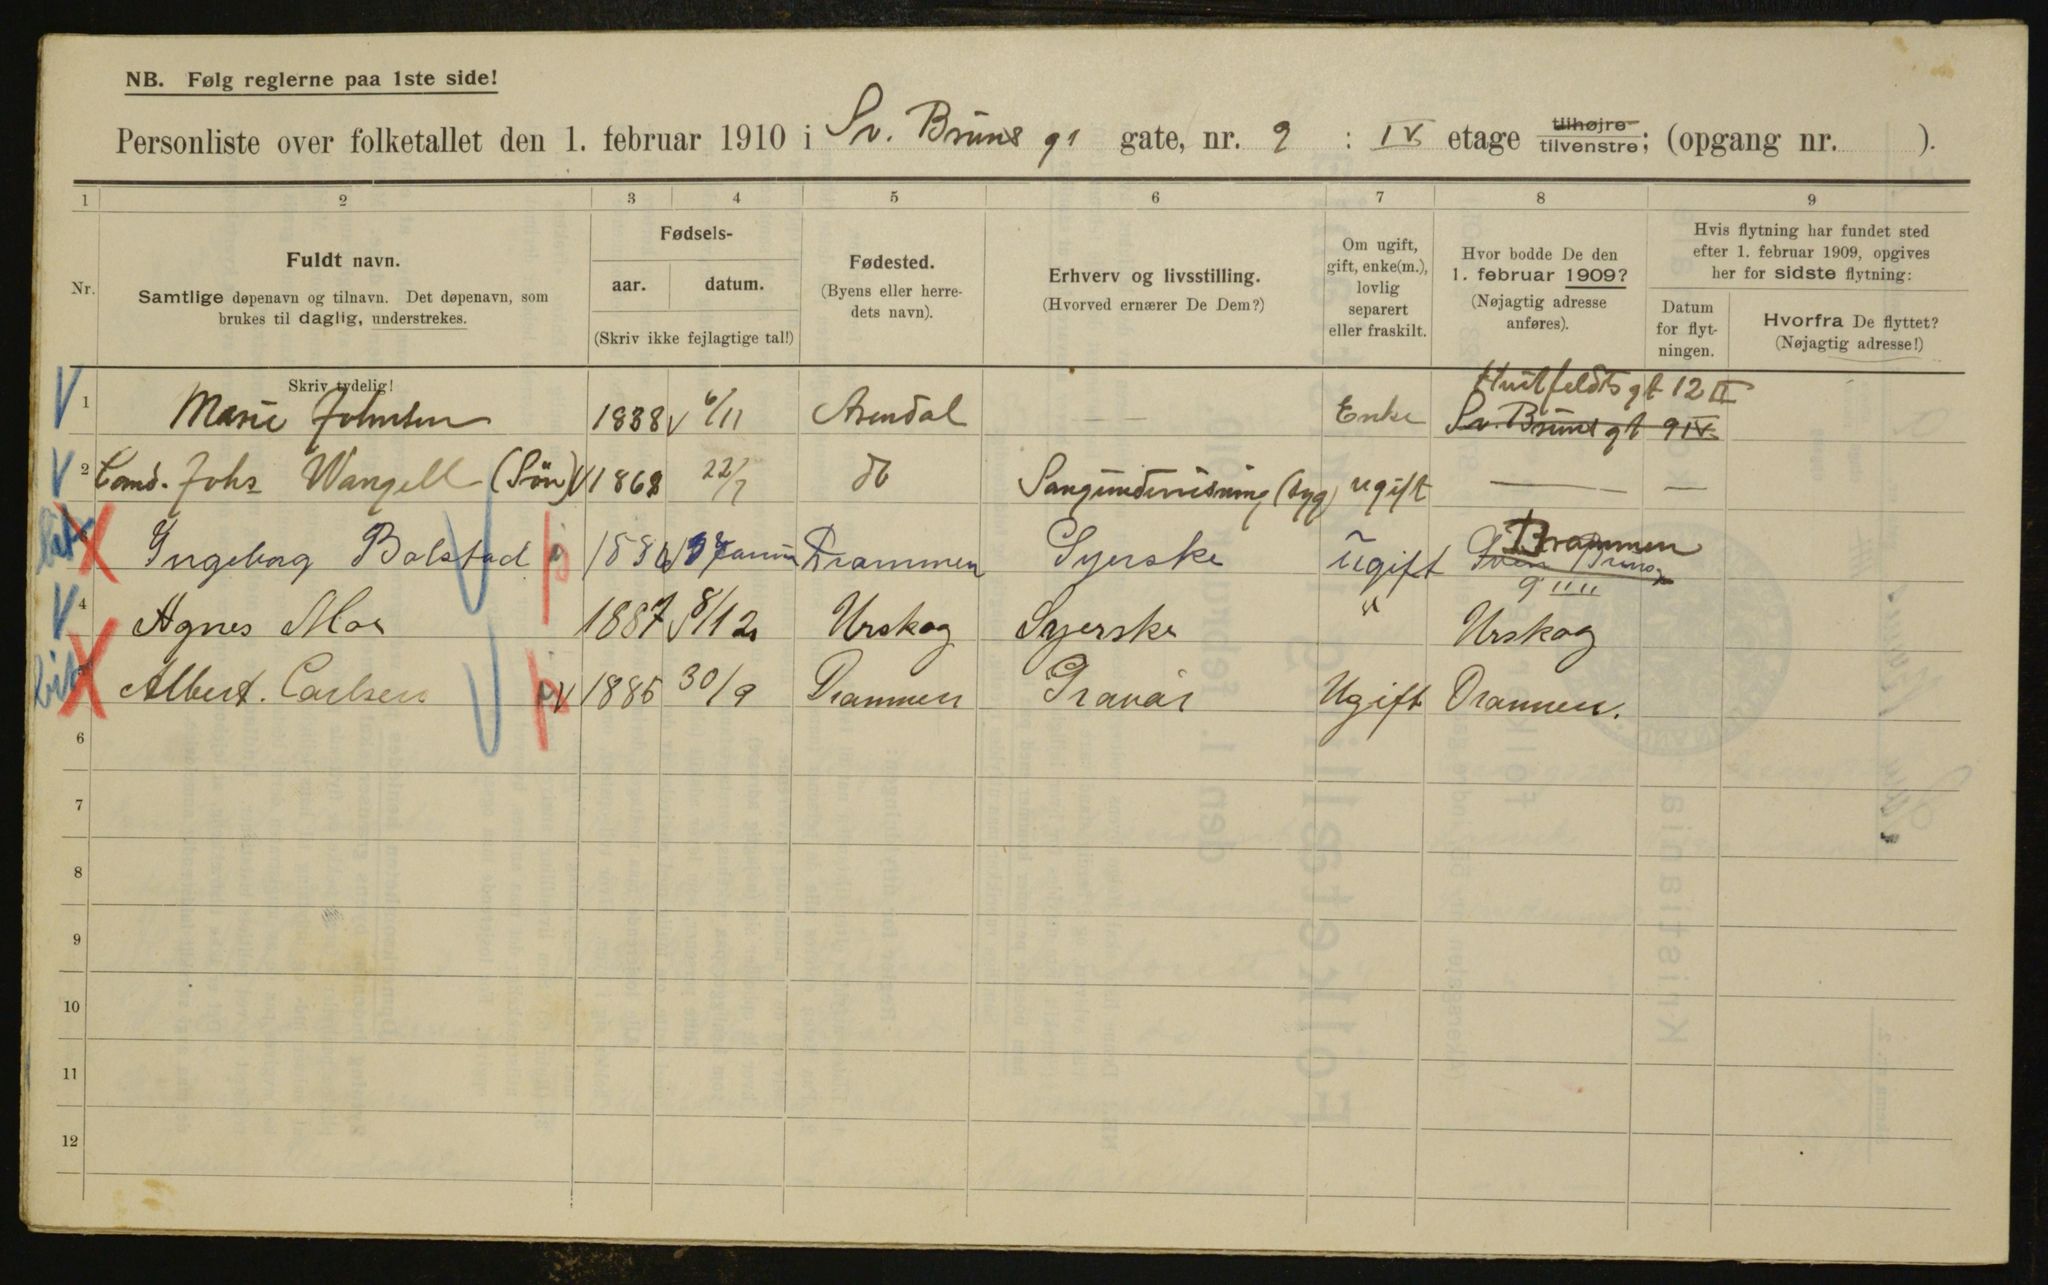 NB. Følg reglerne paa 1ste side!
Personliste over folketallet den 1. februar 1910 i Sv. Bruns gt gate, nr. 9 : IV etage tilhøjre tilvenstre; (opgang nr. ).
1 2 3 4 5 6 7 8 9
Nr.
Fuldt navn.
Samtlige døpenavn og tilnavn. Det døpenavn, som
brukes til daglig, understrekes.
Skriv tydelig!
Fødsels-
aar. datum.
(Skriv ikke fejlagtige tal!)
Fødested.
(Byens eller herre-
dets navn).
Erhverv og livsstilling.
(Hvorved ernærer De Dem?)
Om ugift,
gift, enke(m.),
lovlig
separert
eller fraskilt.
Hvor bodde De den
1. februar 1909?
(Nøjagtig adresse
anføres).
Hvis flytning har fundet sted
efter 1. februar 1909, opgives
her for sidste flytning:
Datum
for flyt-
ningen.
Hvorfra De flyttet?
(Nøjagtig adresse!)
Huitfeldts gt 12 II
1 Marie Johnsen 1838 6/11 Arendal — Enke Sv. Bruns gt 9 IV
2 Cand. Johs Wangell (Sön) 1868 22/7 do Sangundervisning (syg) ugift — —
Drammen
Ingeborg Bolstad 1886 Drammen Syerske Ugift
4 Agnes Moe 1887 8/12 Urskog Syerske " Urskog
Albert. Carlsen 1885 30/9 Drammen Gravør Ugift Drammen.
6
7
8
9
10
11
12